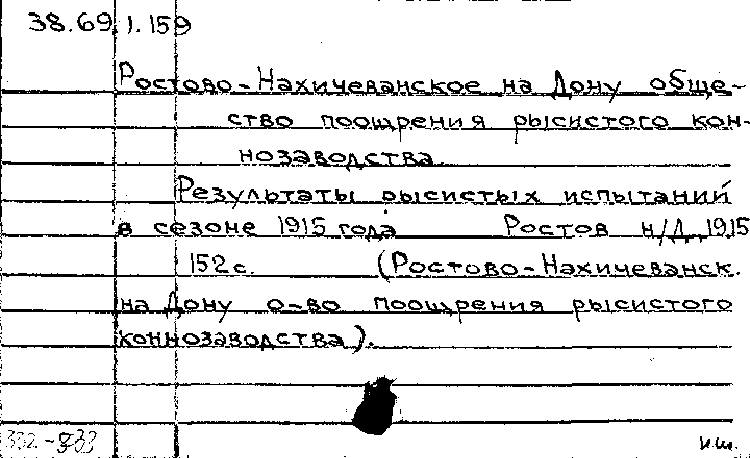 38.69.1.159
Ростово-Нахичеванское на Дону обще-
ство поощрения рысистого кон-
нозаводства.
Результаты рысистых испытаний
в сезоне 1915 года Ростов н/Д, 1915
152 с. (Ростово-Нахичеванск.
на Дону о-во поощрения рысистого
коннозаводства).
332-933
и.ш.